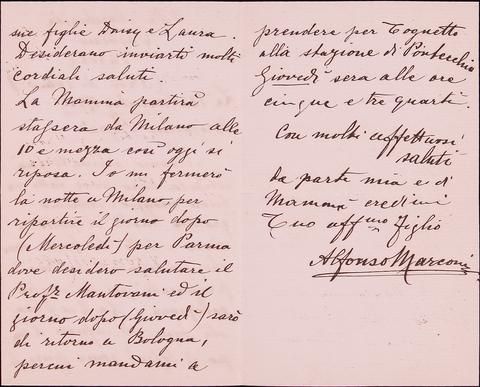 sue figlie Daisy e Laura.
Desiderano inviarti molti
cordiali saluti.
La Mamma partirà
stassera da Milano alle
10 e mezza così oggi si
riposa. Io mi fermerò
la notte a Milano, per
ripartire il giorno dopo
(Mercoledì) per Parma
dove desidero salutare il
Profr Mantovani ed il
giorno dopo (Giovedì) sarò
di ritorno a Bologna,
percui mandami a
prendere per Tognetto
alla stazione di Pontecchio
Giovedì sera alle ore
cinque e tre quarti.
Con molti affettuosi
saluti
da parte mia e di
Mamma credimi
Tuo affmo figlio
Alfonso Marconi